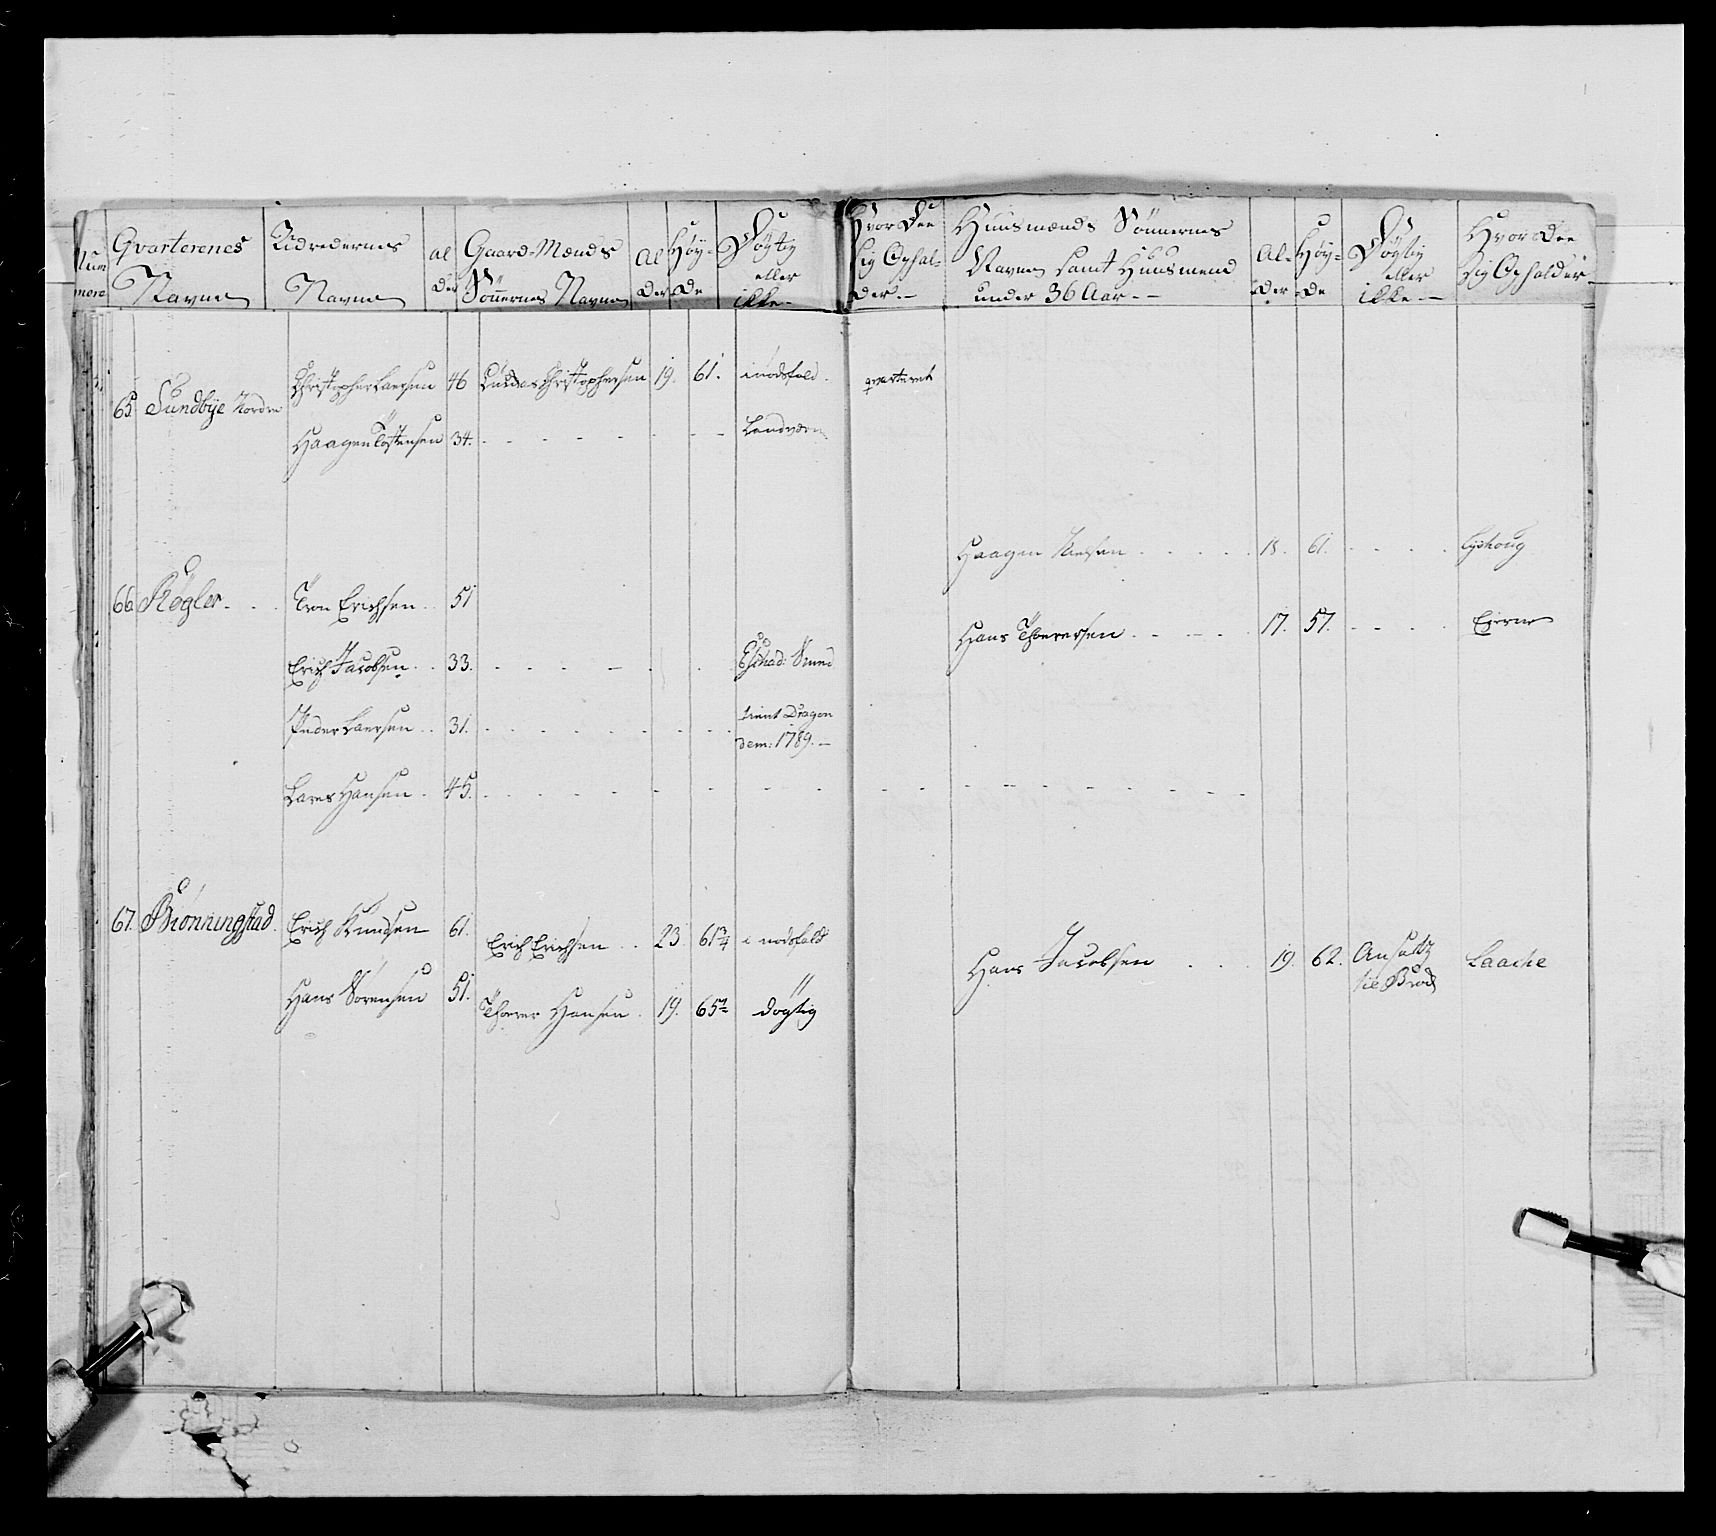 Num mere
Qvarterenes Navne
Navne
Al der
Gaard-Mænds Sönnernes Navne
Al der
Höy- de
Döygtig eller ikke.-
Hvor Dee sig Ophol- der.-
Huusmænds Sönnernes Navne samt Huusmend under 36 Aar.-
Al- der
Höy- de
Döygtig eller ikke.-
Hvor Dee sig Opholder
65. Sundbye Nordre Christopher Laersen 46 Christophersen 19. 61. i nödsfald. qvarteret
Haagen Tostensen 34. Landværn
Haagen Nielsen 18. 61. Lyshoug
66. Kogler Tron Erichsen 51
Hans Thorersen 17. 57. Eierne
Erich Jacobsen 33.
Peder Laersen 31. tient Dragon
dem: 1789.-
Lares Hansen 45.
67. Brönningstad. Erich Knudsen 61. Erich Erichsen 23 61 3/4 i nödsfald
Hans Jacobsen 19. 62. Ansatz til Brod Laache
Hans Sörensen 51. Thorer Hansen 19. 65 1/2 dögtig